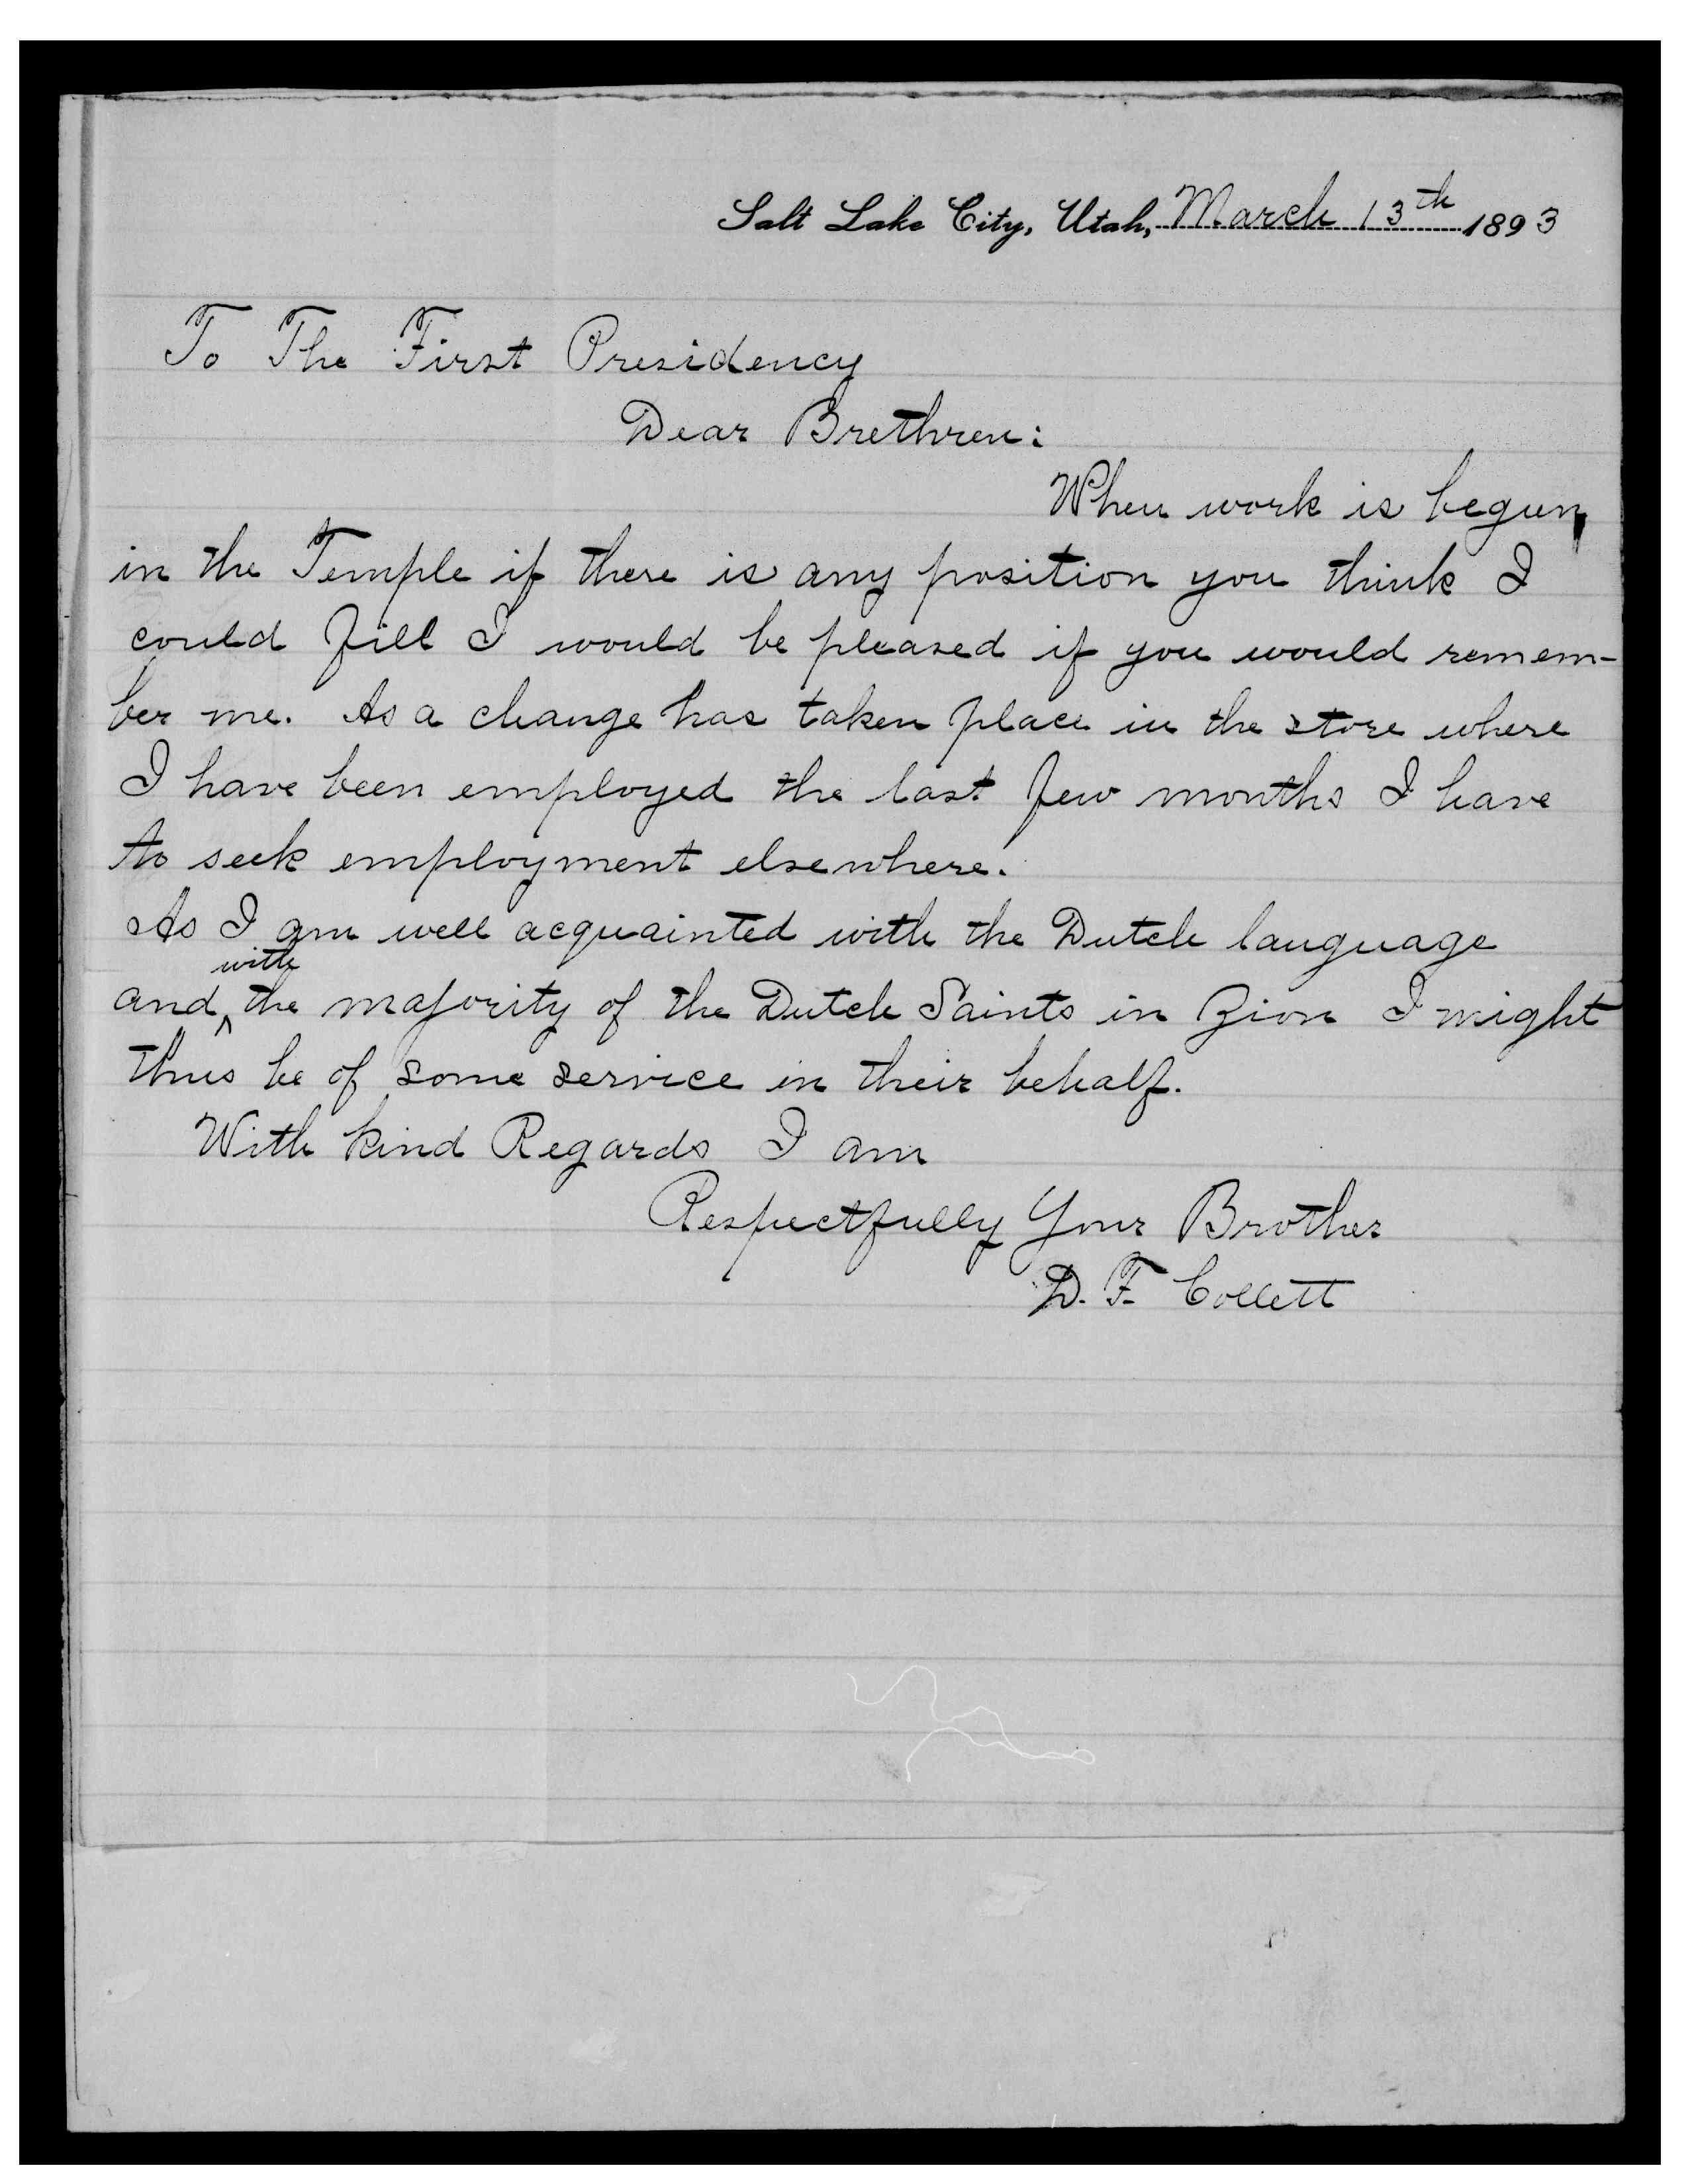 Salt Lake City, Utah, March 13th 1893
To The First Presidency
Dear Brethren:
When work is begun
in the Temple if there is any position you think I
could fill I would be pleased if you would remem-
ber me. As a change has taken place in the store where
I have been employed the last few months I have
to seek employment elsewhere.
As I am well acquainted with the Dutch language
with
and ^ the majority of the Dutch Saints in Zion I might
thus be of some service in their behalf.
With kind Regards I am
Respectfully Your Brother
D. F. Collett